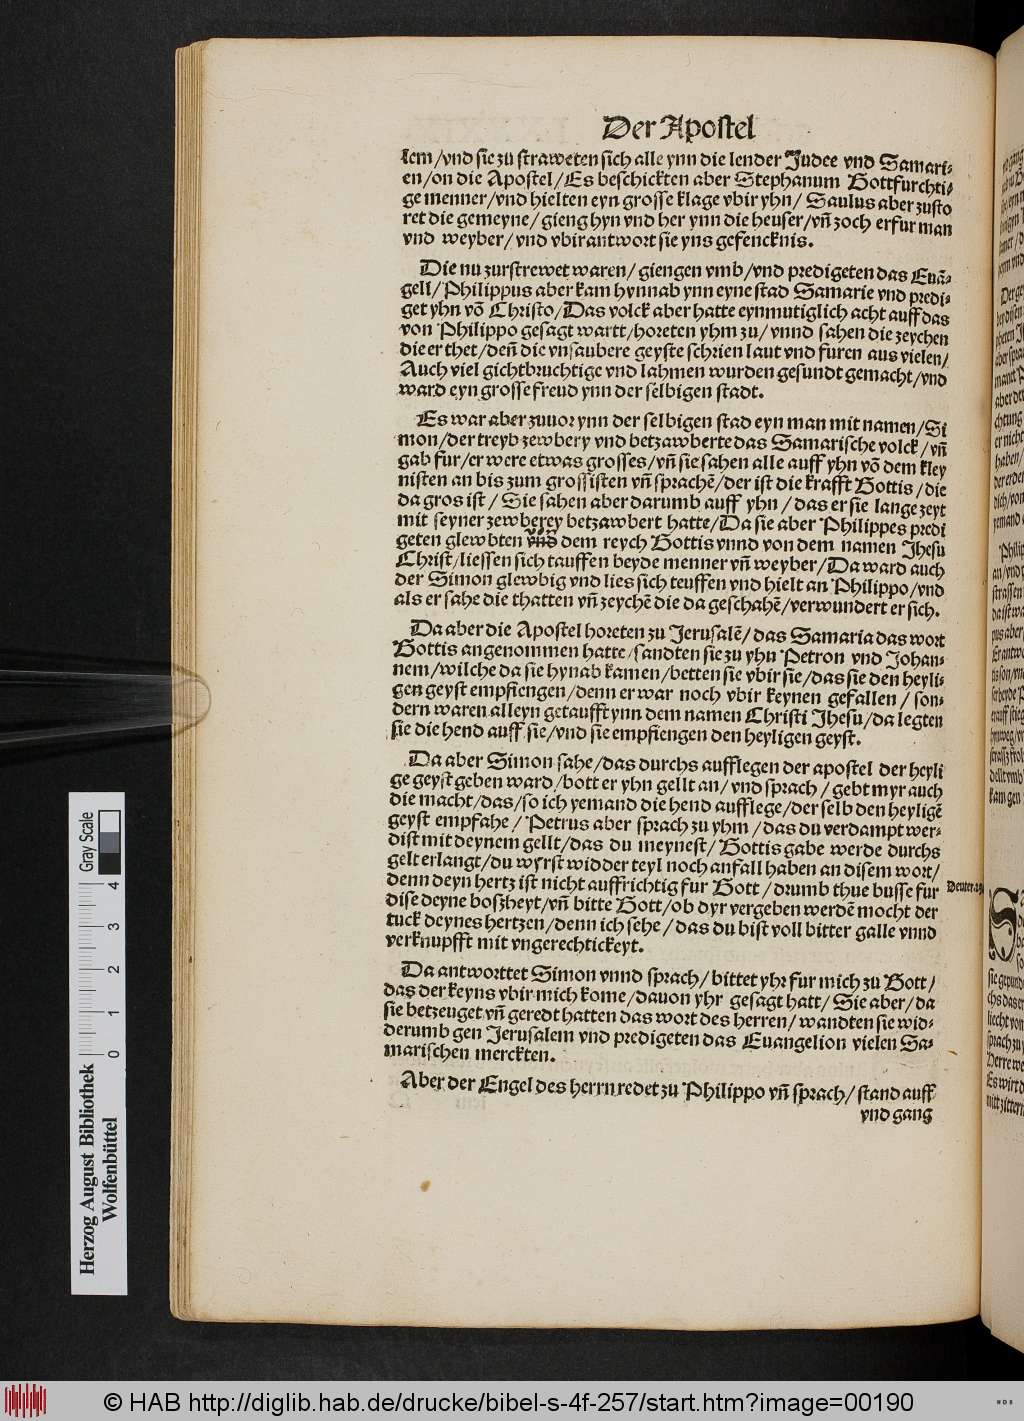 Der Apostel
lem/vnd sie zu straweten sich alle ynn die lender Judee vnd Samari-
en/on die Apostel/Es beschickten aber Stephanum Gottfurchti-
ge menner/vnd hielten eyn grosse klage vbir yhn/ Saulus aber zusto
ret die gemeyne/gieng hyn vnd her ynn die heuser/vñ zoch erfur man
vnd weyber/vnd vbirantwort sie yns gefencknis.
Die nu zurstrewet waren/giengen vmb/vnd predigeten das Euā-
geli/Philippus aber kam hynnab ynn eyne stad Samarie vnd predi-
get yhn võ Christo/Das volck aber hatte eynmutiglich acht auff das
von Philippo gesagt wartt/horeten yhm zu/vnnd sahen die zeychen
die er thet/deñ die vnsaubere geyste schrien laut vnd furen aus vielen/
Auch viel gichtbruchtige vnd lahmen wurden gesundt gemacht/vnd
ward eyn grosse freud ynn der selbigen stadt.
Es war aber zuuor ynn der selbigen stad eyn man mit namen/Si
mon/der treyb zewbery vnd betzawberte das Samarische volck/vñ
gab fur/er were etwas grosses/vñ sie sahen alle auff yhn võ dem kley
nisten an bis zum grossisten vñ sprachē/der ist die krafft Gottis/die
da gros ist/Sie sahen aber darumb auff yhn/das er sie lange zeyt
mit seyner zewberey betzawbert hatte/Da sie aber Philippes predi
geten glewbten dem reych Gottis vnnd von dem namen Jhesu
Christ/liessen sich tauffen beyde menner vñ weyber/Da ward auch
der Simon glewbig vnd lies sich teuffen vnd hielt an Philippo/vnd
als er sahe die thatten vñ zeychē die da geschahē/verwundert er sich.
Da aber die Apostel horeten zu Jerusalē/das Samaria das wort
Gottis angenommen hatte/sandten sie zu yhn Petron vnd Johan-
nem/wilche da sie hynab kamen/betten sie vbir sie/das sie den heyli-
gen geyst empfiengen/denn er war noch vbir keynen gefallen/son-
dern waren alleyn getaufft ynn dem namen Christi Jhesu/da legten
sie die hend auff sie/vnd sie empfiengen den heyligen geyst.
Da aber Simon sahe/das durchs aufflegen der apostel der heyli
ge geyst geben ward/bott er yhn gellt an/vnd sprach/gebt myr auch
die macht/das/so ich yemand die hend aufflege/der selb den heyligē
geyst empfahe/Petrus aber sprach zu yhm/das du verdampt wer-
dist mit deynem gellt/das du meynest/Gottis gabe werde durchs
gelt erlangt/du wyrst widder teyl noch anfall haben an disem wort/
denn deyn hertz ist nicht auffrichtig fur Gott/drumb thue busse fur
dise deyne boßheyt/vñ bitte Gott/ob dyr vergeben werdē mocht der
tuck deynes hertzen/denn ich sehe/das du bist voll bitter galle vnnd
verknupfft mit vngerechtickeyt.
Da antworttet Simon vnnd sprach/bittet yhr fur mich zu Gott/
das der keyns vbir mich kome/dauon yhr gesagt hatt/Sie aber/da
sie betzeuget vñ geredt hatten das wort des herren/wandten sie wid-
derumb gen Jerusalem vnd predigeten das Euangelion vielen Sa-
marischen merckten.
Aber der Engel des herrn redet zu Philippo vñ sprach/stand auff
vnd gang
Herzog August Bibliothek
Wolfenbüttel
Gray Scale
0 1 2 3 4
© HAB http://diglib.hab.de/drucke/bibel-s-4f-257/start.htm?image=00190